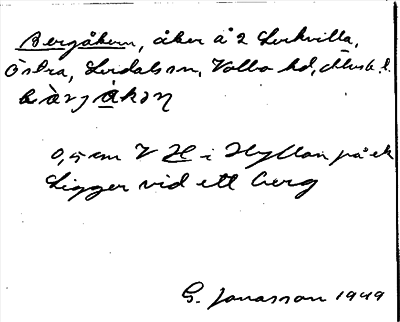 Bergåkern, åker å 2 Lockvilla,
Östra, Lerdals sn, Valbo hd,
bàrjåkəɳ
0,5 cm V H i Hyllan på ek
Ligger vid ett berg
G. Jonasson 1949